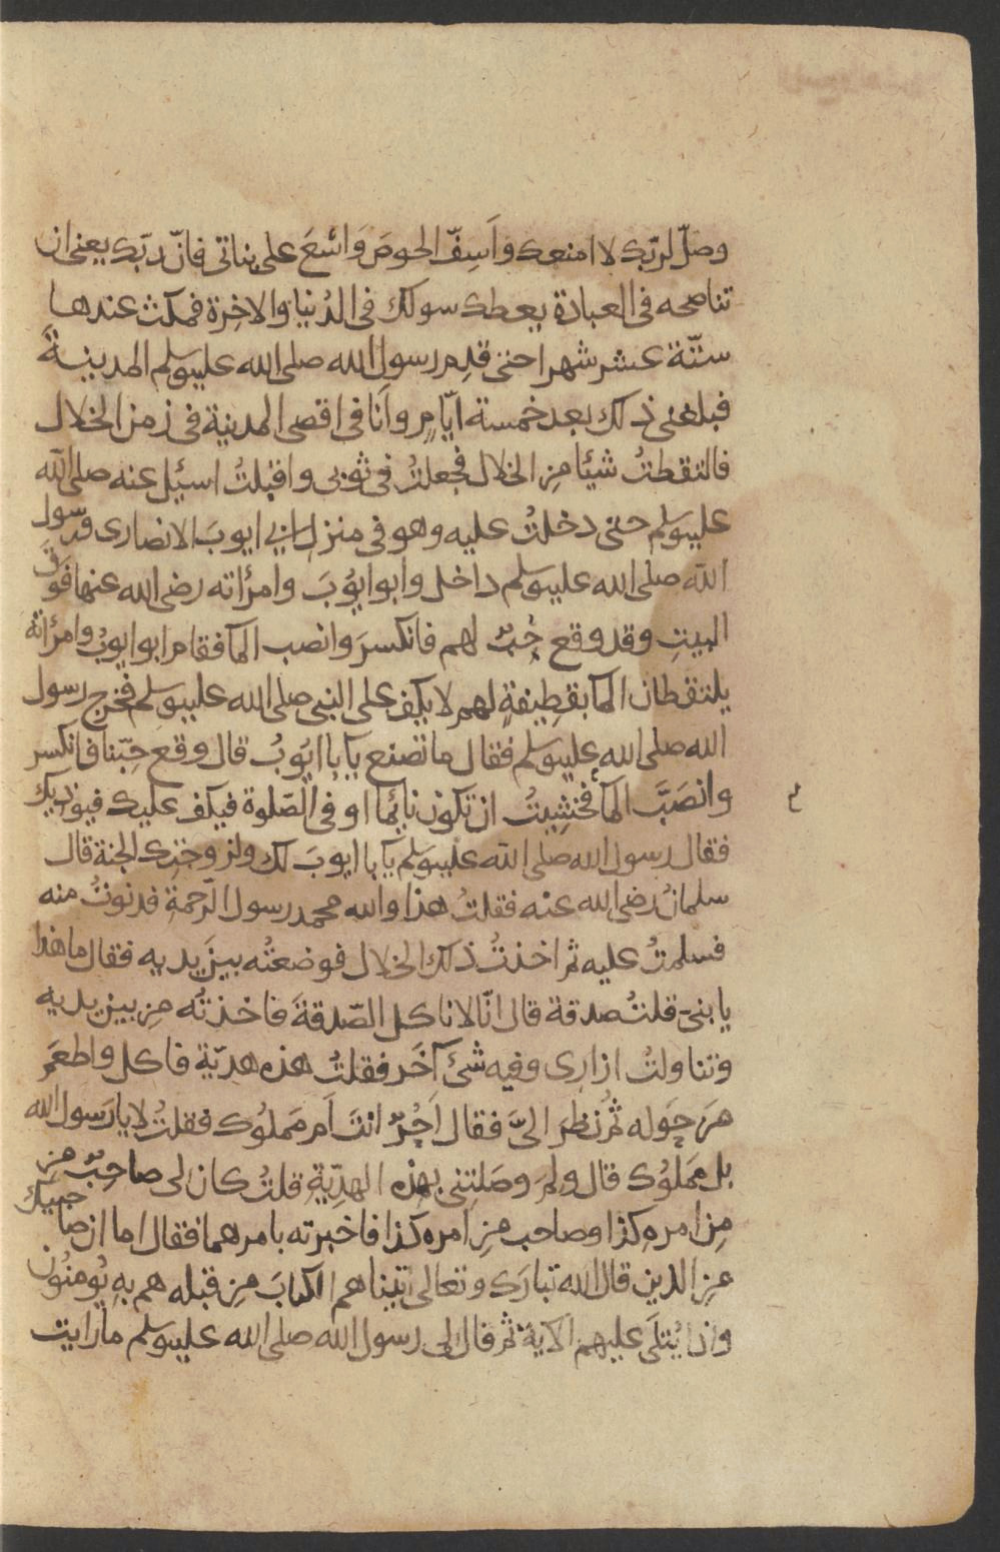 وصلّ لربّك لا امنعك واَسِفّ الحوصَ وَاسْعَ على بناتى فانّ ربّك يعنى ان
تناصحه فى العبادة يعطك سولك فى الدُنيا والاخِرة فمكث عندها
ستّة عشر شهرا حتى قدِم رسول الله صلى الله عليه وسلم المدينةَ
فبلغنى ذلك بعد خمسة ايّامٍ وانَا فى اقصى المدينة فى زمن الخلال
فالتقطتُ شيئا مِن الخلال فجعلتُ فى ثوبى واقبلتُ اسئل عنه صلى الله
عليه وسلم حتى دخلتُ عليه وهو فى منزل ابى ايوبَ الانصارى ورسول
الله صلى الله عليه وسلم داخل وابو ايوُبَ وامرُاته رضى الله عنهما فَوقَ
البيتِ وقد وقع حُبٌّ لهم فانكسرَ وانصب المآ فقام ابو ايوبُ وامرُاته
يلتقطان المآ بقطِيفةٍ لهم لا يكِف على النبى صلى الله عليه وسلم فخرج رسول
الله صلى الله عليه وسلم فقال ما تصنع يآ باا ايوُبُ قال وقع حِبّنا فانكسر
وانصَبَّ المآ فخشِيتُ ان تكون نائِما او فى الصّلوة فيكف عليك فيوذيك
فقال رسول الله صلى الله عليه وسلم يآ با ايوبَ لك ولزوجتِك الجنة قال
سلمانُ رضى الله عنه فقلتُ هذا والله محمد رسول الرّحمةِ فدنوتُ منه
فسلمتُ عليه ثم اخذتُ ذلك الخلال فوضعتُه بينَ يديه فقال ما هذا
يا بنىّ قلتُ صدقة قال انّا لا ناكل الصّدقةَ فاخذتُه مِن بين يديه
وتناولتُ ازارى وفيه شئ آخَر فقلتُ هذه هديّة فاكل واطعَم
مَن حَوله ثُم نظر الىَّ فقال اَحُرٌّ انتَ اَم مَملُوك فقلتُ لا يا رَسول الله
بل مَملُوك قال ولِمَ وصَلتِنى بهذه الهدِيّةِ قلتُ كان لى صاحِبٌ مِن
مِن امرهِ كذا وصاحب مِن امره كذا فاخبرته بامرهما فقال اما ان صاحبيك
مِن الذين قال الله تبارَك وتعالى اتيناهم الكتابَ مِن قبله هم بهِ يُومنوُن
واذا يُتلَى عليهم الآية ثم قال لى رسول الله صلى الله عليه وسلم ما رايت